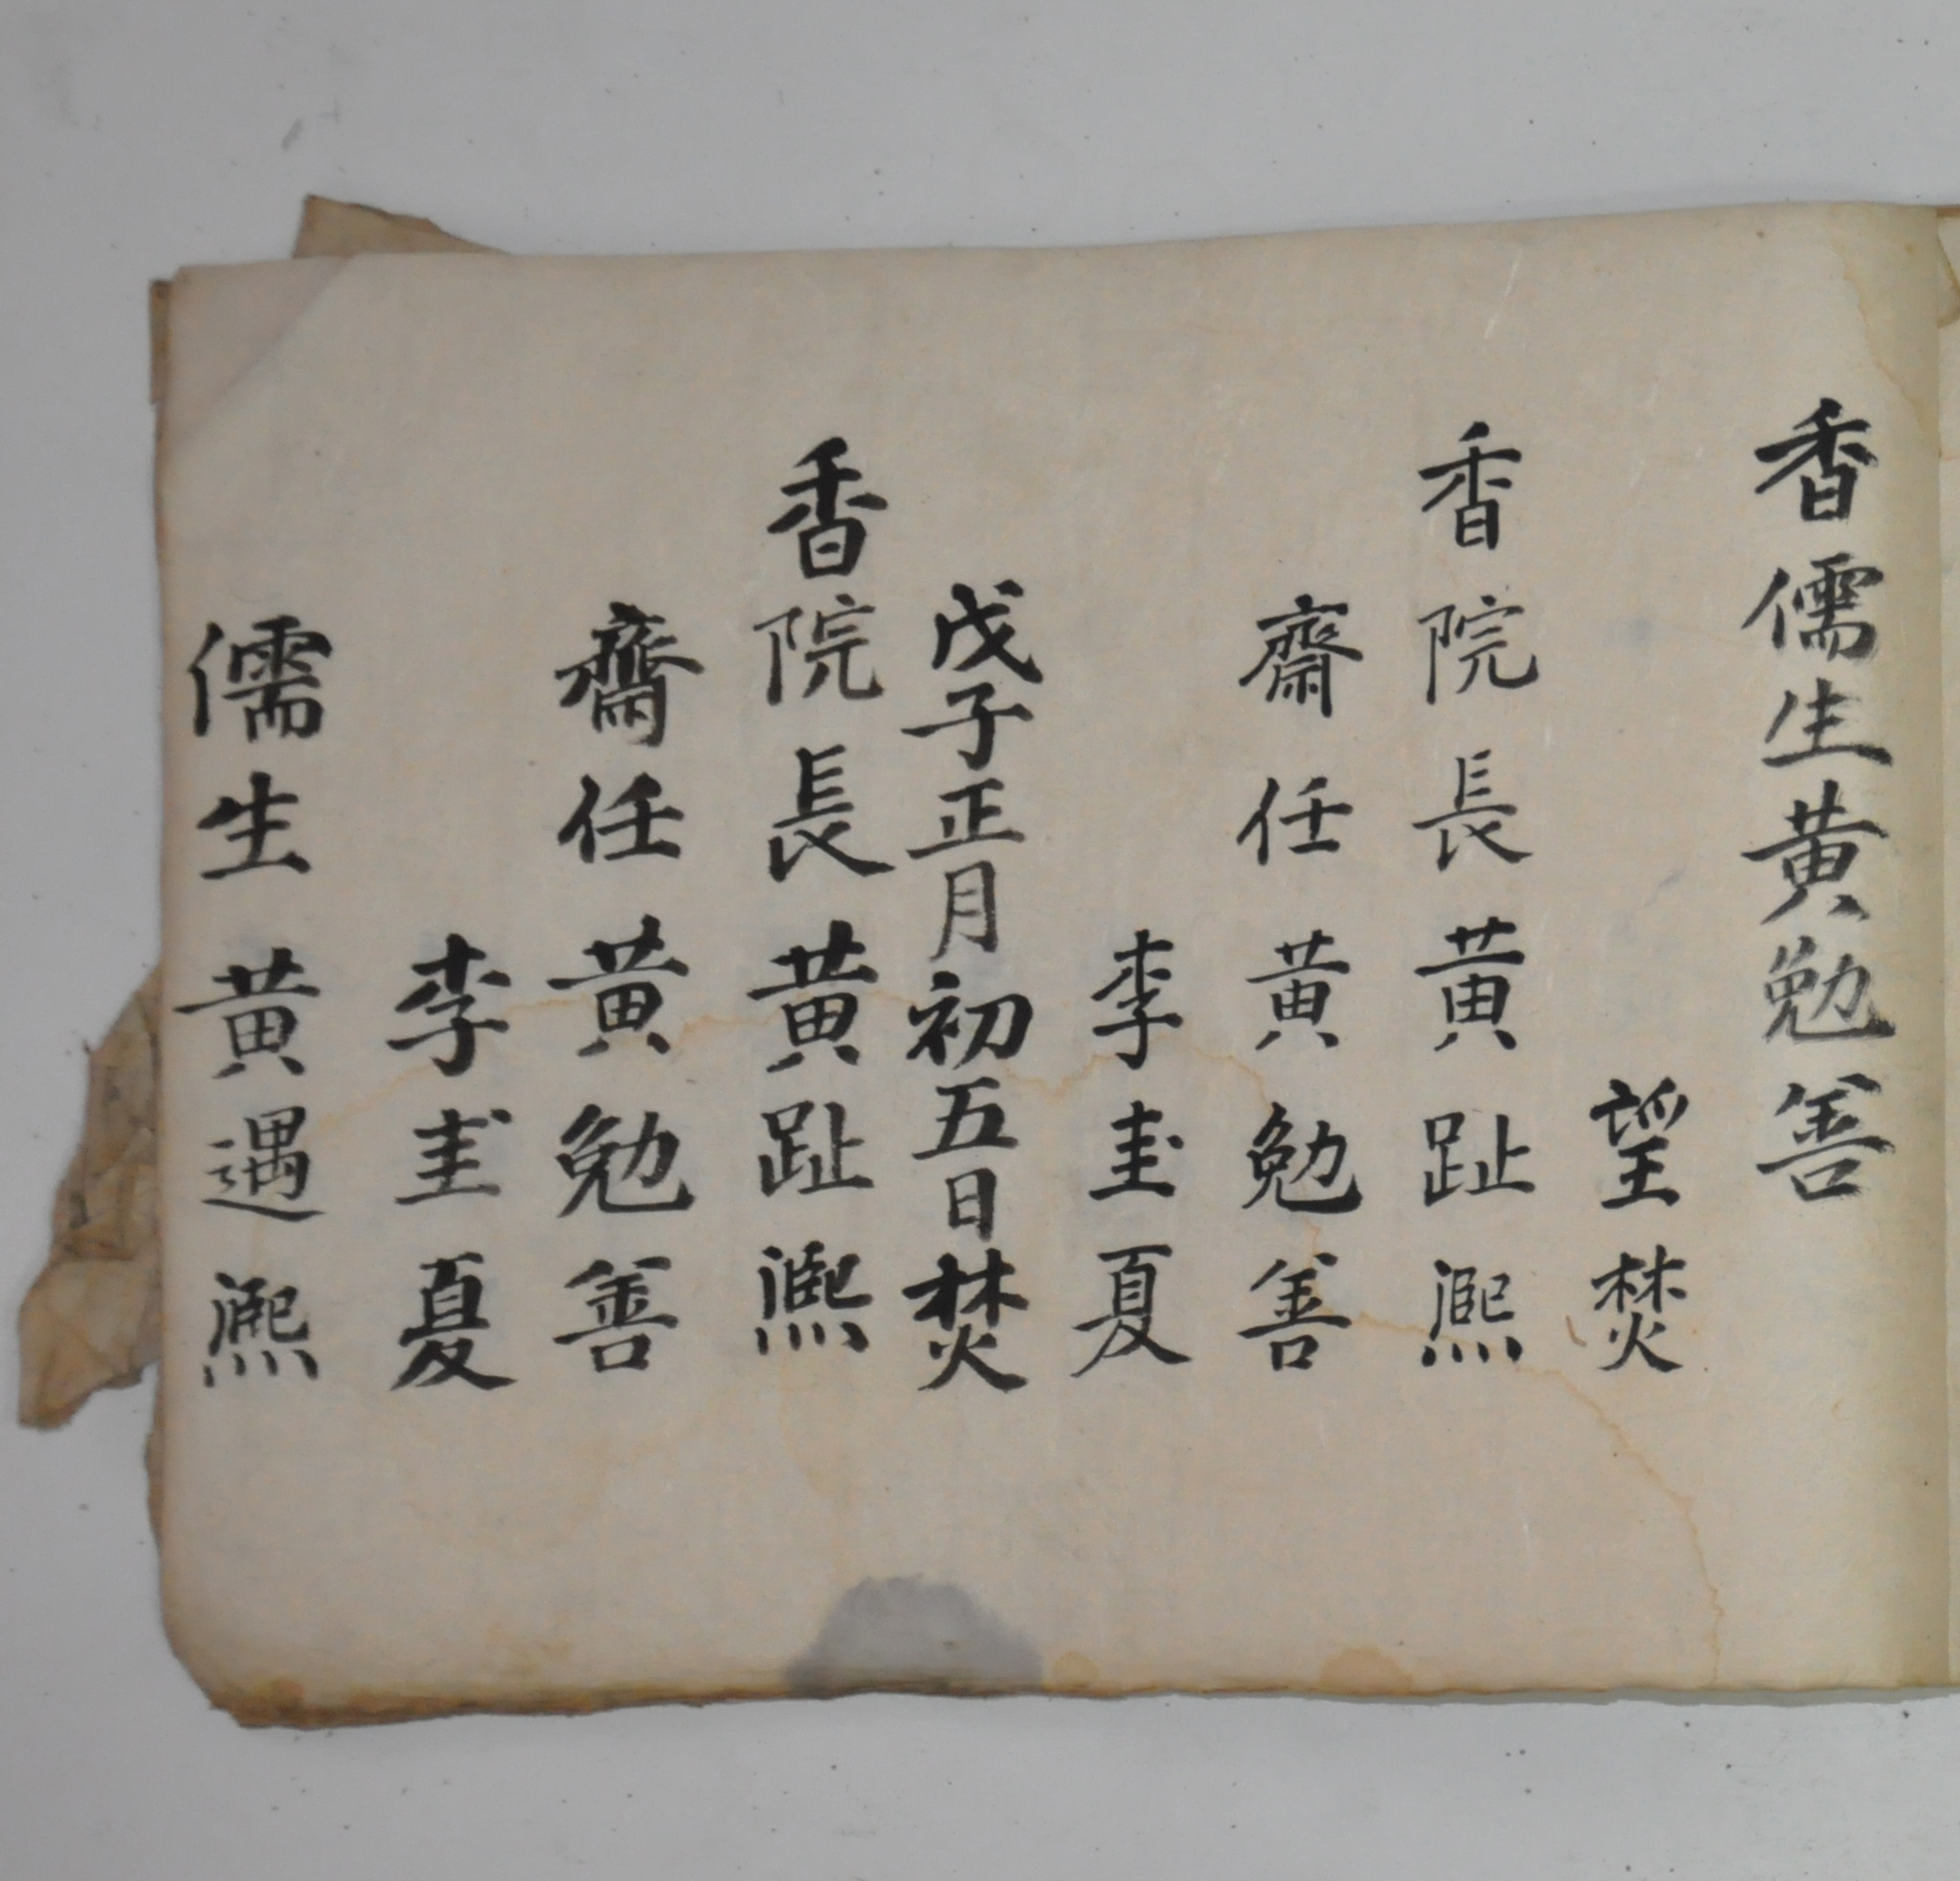 香儒生黄勉善
望焚
香院長黄趾熙
齋任黄勉善
李圭夏
戊子正月初五日焚
香院長黄趾熙
齋任黄勉善
李圭夏
儒生黄遇熙